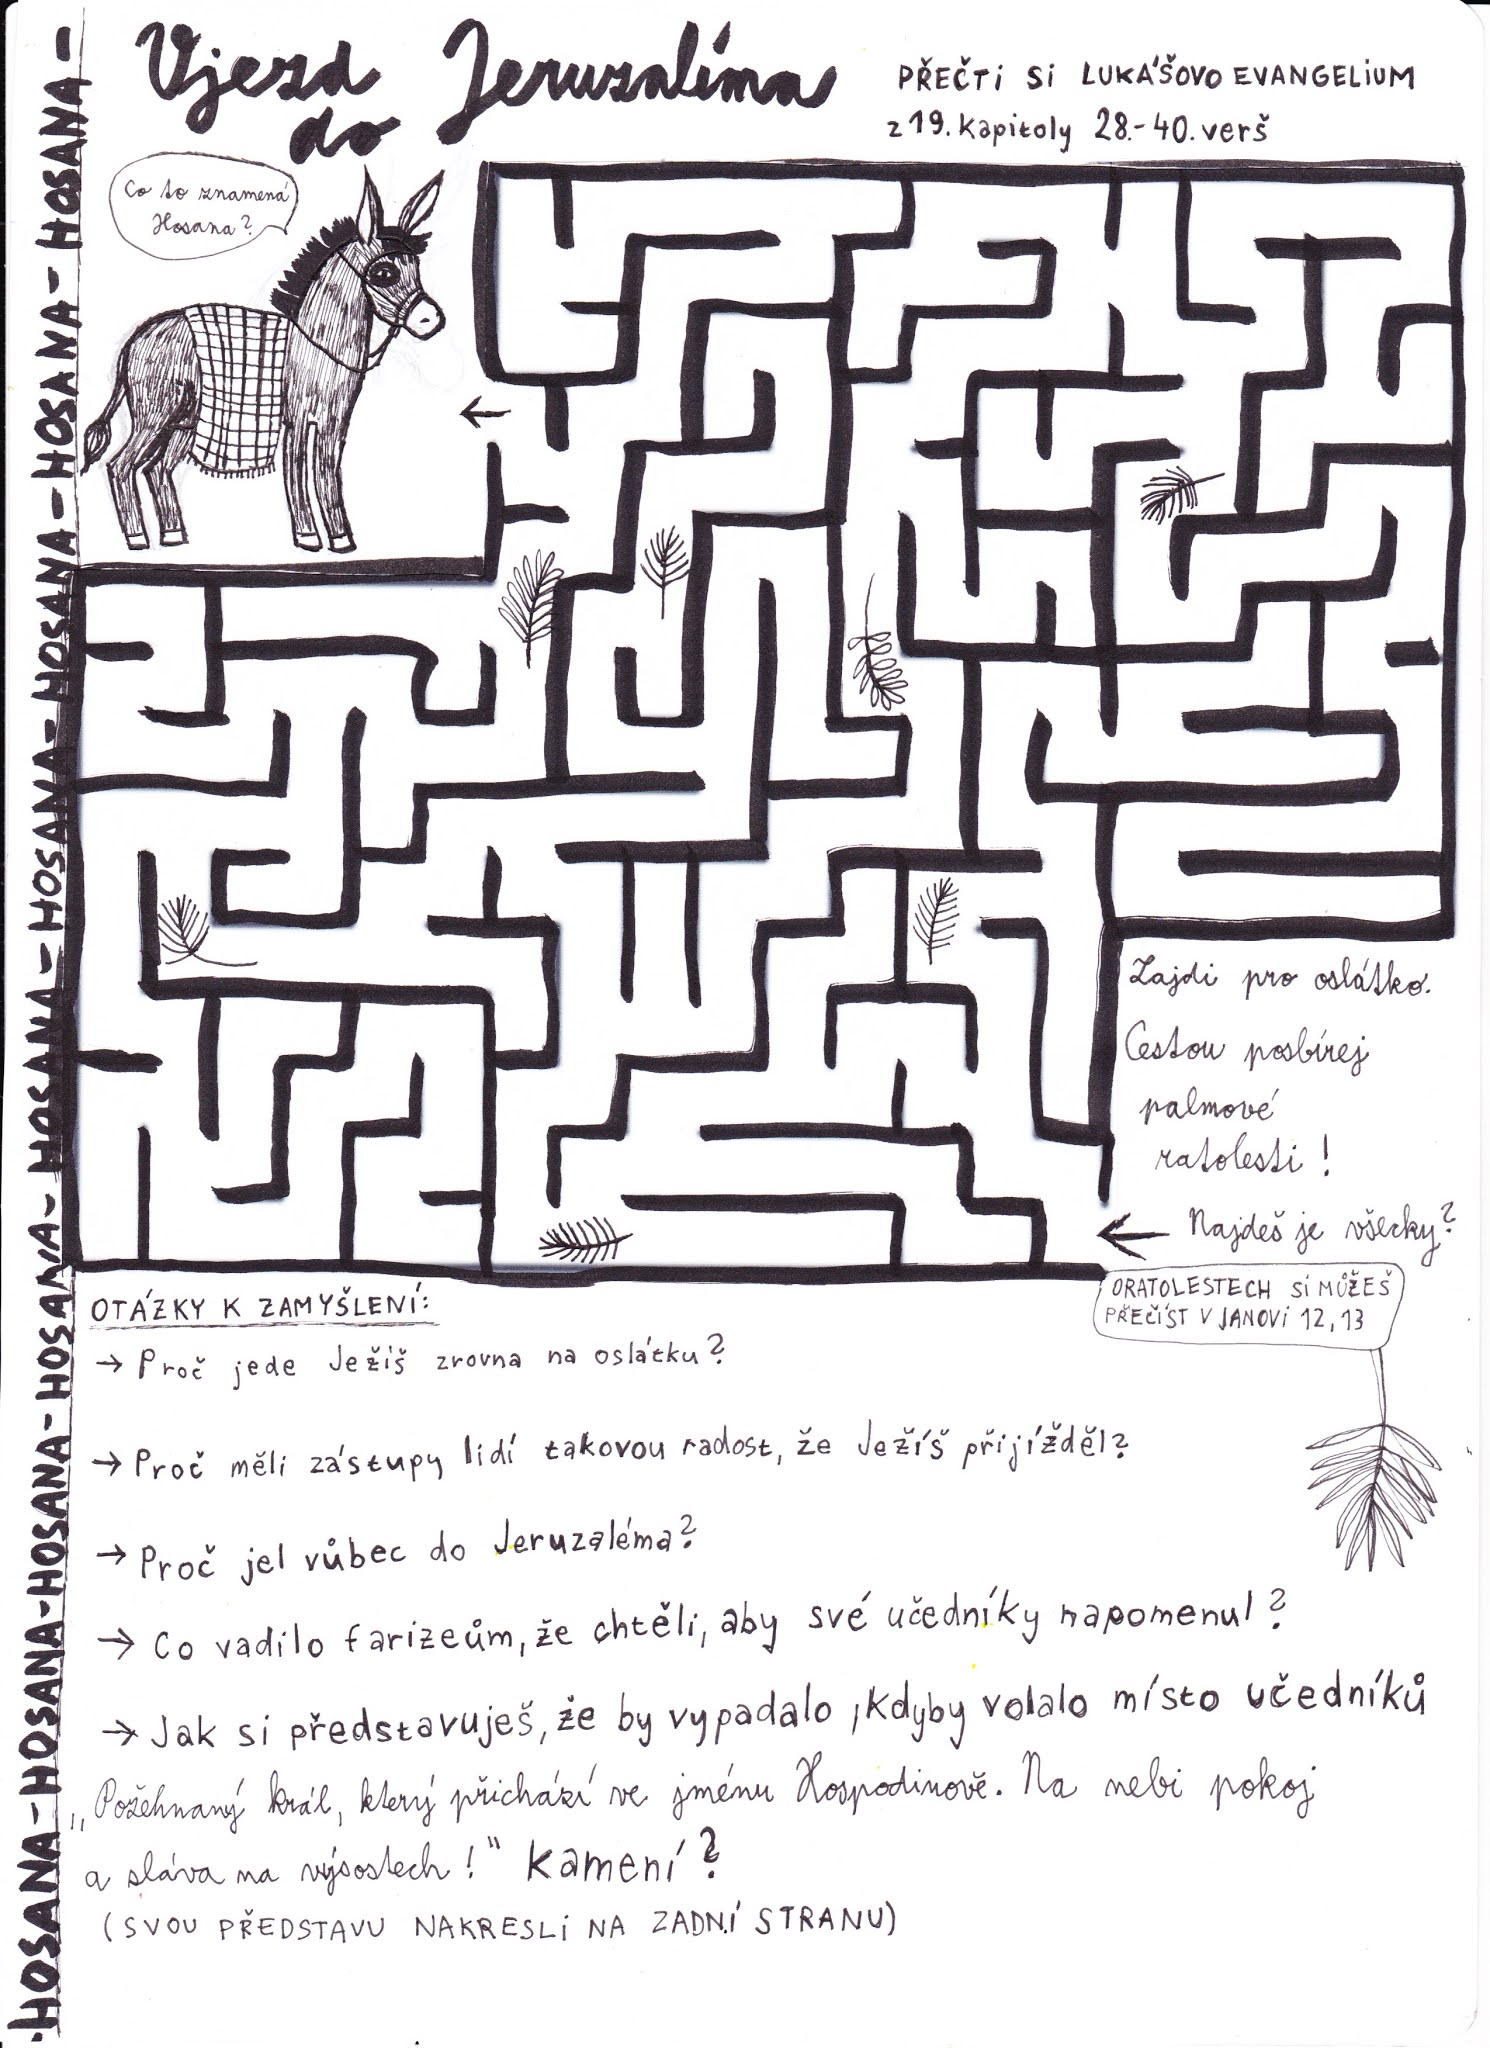 Vjezd
do Jeruzalíma
PŘEČTI SI LUKÁŠOVO EVANGELIUM
z 19. kapitoly 28.-40. verš
Co to znamená
Hosana?
HOSANA-HOSANA-HOSANA-HOSANA-HOSANA-HOSANA-HOSANA-HOSANA-HOSANA-HOSANA-HOSANA-HOSANA-HOSANA-HOSANA-HOSANA-
Zajdi pro oslátko.
Cestou posbírej
palmové
ratolesti!
Najdeš je všecky?
ORATOLESTECH SI MŮŽEŠ
PŘEČÍST V JANOVI 12,13
OTÁZKY K ZAMYŠLENÍ:
→ Proč jede Ježiš zrovna na oslátku?
→ Proč měli zástupy lidí takovou radost, že Ježíš přijížděl?
→ Proč jel vůbec do Jeruzaléma?
→ Co vadilo farizeům, že chtěli, aby své učedníky napomenul?
→ Jak si představuješ, že by vypadalo, kdyby volalo místo učedníků
„Požehnaný král, který přichází ve jménu Hospodinově. Na nebi pokoj
a sláva na výsostech!" kamení?
(SVOU PŘEDSTAVU NAKRESLI NA ZADNÍ STRANU)